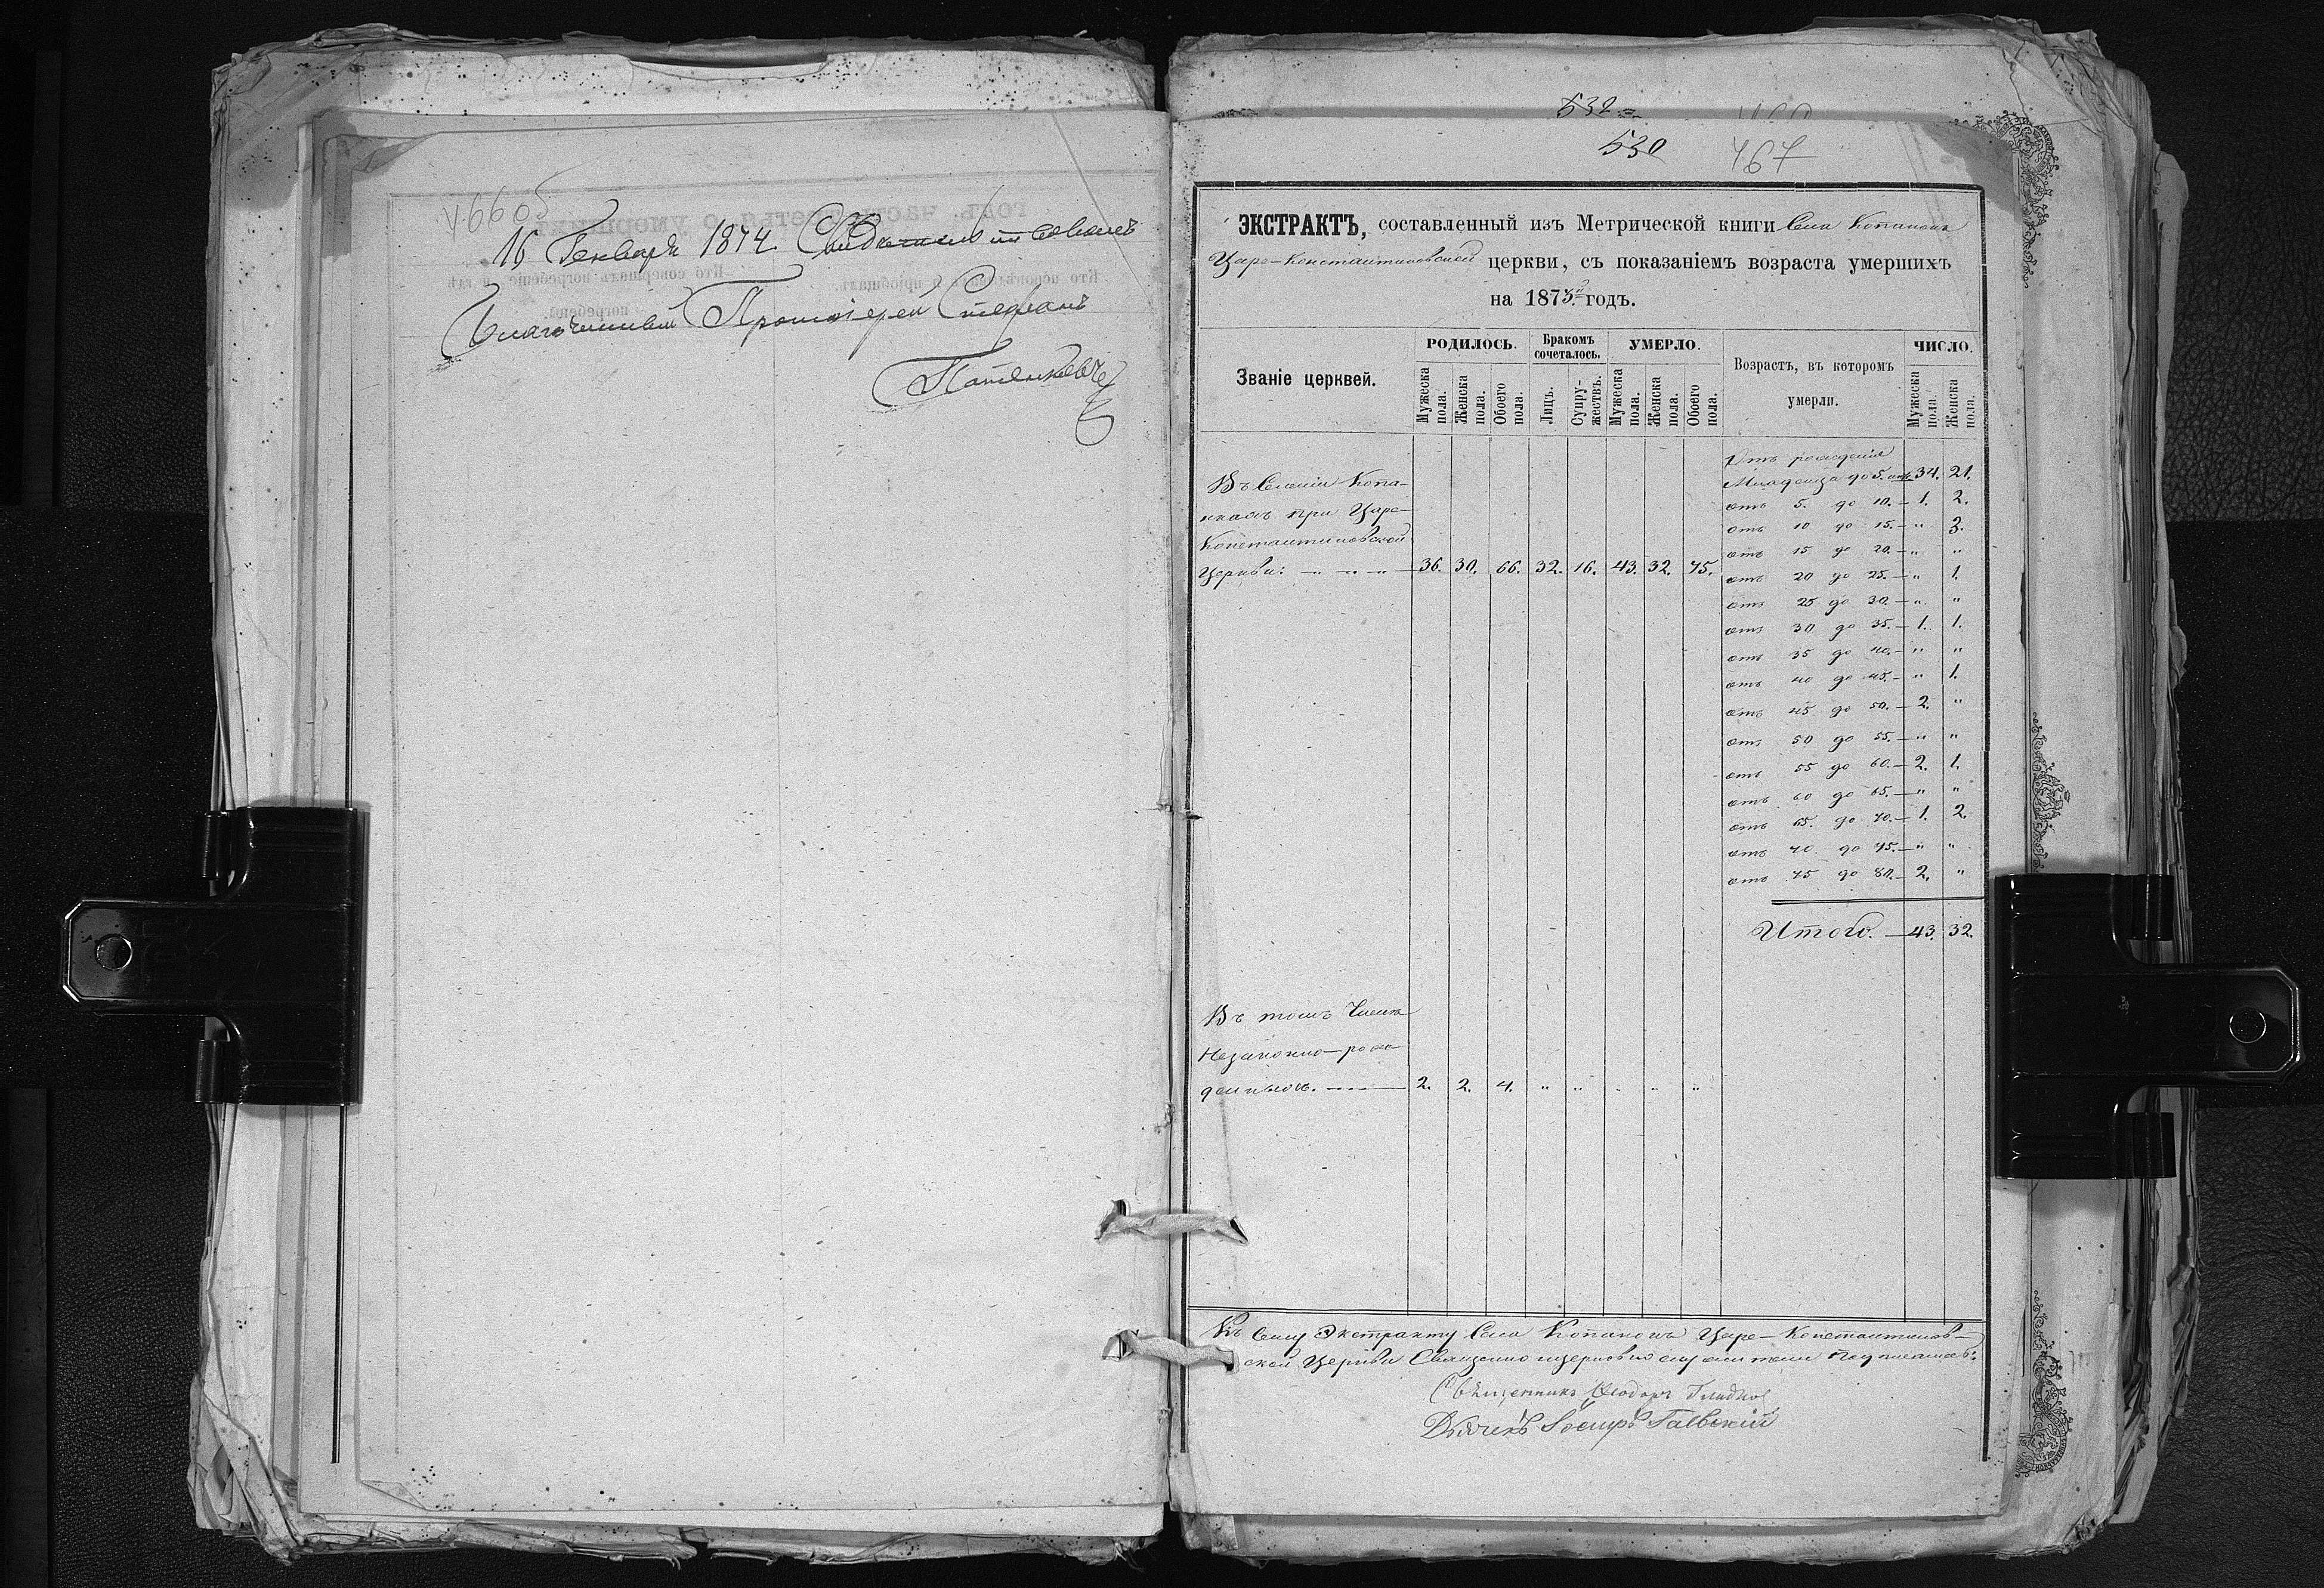 466 об
16 Генваря 1874. Свидѣтельствовалъ
Благочинный Протоіерей Стефанъ
532
530
467
ЭКСТРАКТЪ, составленный изъ Метрической книги Села Копанокъ
Царе-Константиновской церкви, съ показаніемъ возраста умершихъ
на 1873й годъ.
Званіе церквей.
РОДИЛОСЬ.
Бракомъ сочеталось.
УМЕРЛО.
Возрастъ, въ которомъ умерли.
ЧИСЛО.
Мужеска пола.
Женска пола.
Обоего пола.
Лицъ.
Супружествъ.
Мужеска пола.
Женска пола.
Обоего пола.
Мужеска пола.
Женска пола.
Въ Селеніи Копа-
нкахъ при Царе-
Константиновской
Церкви: — „ — „ — „ — 36. 30. 66. 32. 16. 43. 32. 75.
Отъ рожденія
Младенца до 5. лѣтъ 34. 21.
отъ 5. до 10. — 1. 2.
отъ 10 до 15. — „ 3.
отъ 15 до 20. — „ „
отъ 20 до 25. — „ 1.
отъ 25 до 30. — „ „
отъ 30 до 35. — 1. 1.
отъ 35 до 40. — „ „
отъ 40 до 45. — „ 1.
отъ 45 до 50. — 2. „
отъ 50 до 55. — „ „
отъ 55 до 60. — 2. 1.
отъ 60 до 65. — „ „
отъ 65. до 70. — 1. 2.
отъ 70 до 75. — „ „
отъ 75 до 80. — 2. „
Итого. — 43. 32.
Въ томъ Числѣ
Незаконно-рож-
денныхъ. — 2. 2. 4. „ „ „ „ „
Къ Сему Экстракту Села Копанокъ Царе-Константинов-
ской Церкви Священно церковно служители подписались:
Священникъ Ѳеодоръ Гладкій
Дьячекъ Іосифъ Гаевскій